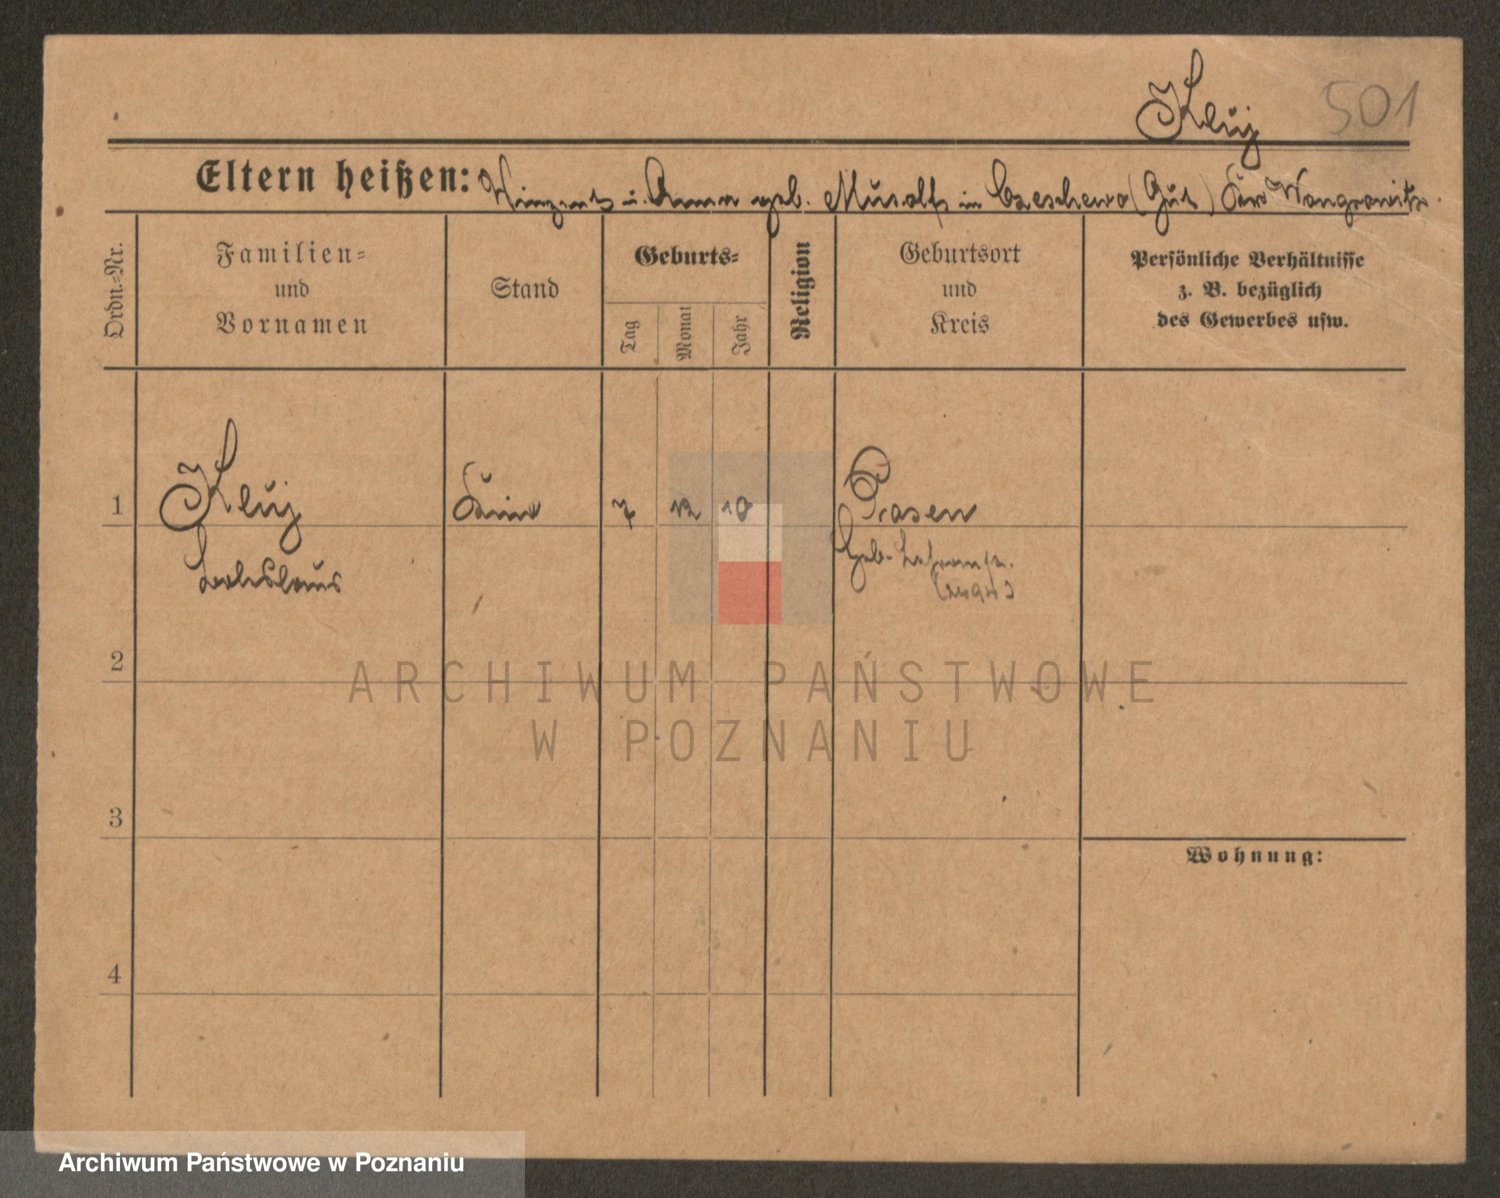 Kluj 501
Eltern heißen: Vinzent u. Anna geb. Musolf in Czeschewo (Gut) Krs Wongrowitz.
Ordn.-Nr.
Familien-
und
Vornamen
Stand
Geburts-
Tag
Monat
Jahr
Religion
Geburtsort
und
Kreis
Persönliche Verhältnisse
z. B. bezüglich
des Gewerbes usw.
1 Kluj 7 12 10 Posen
2
3
4
Wohnung:
ARCHIWUM PAŃSTWOWE
W POZNANIU
Archiwum Państwowe w Poznaniu